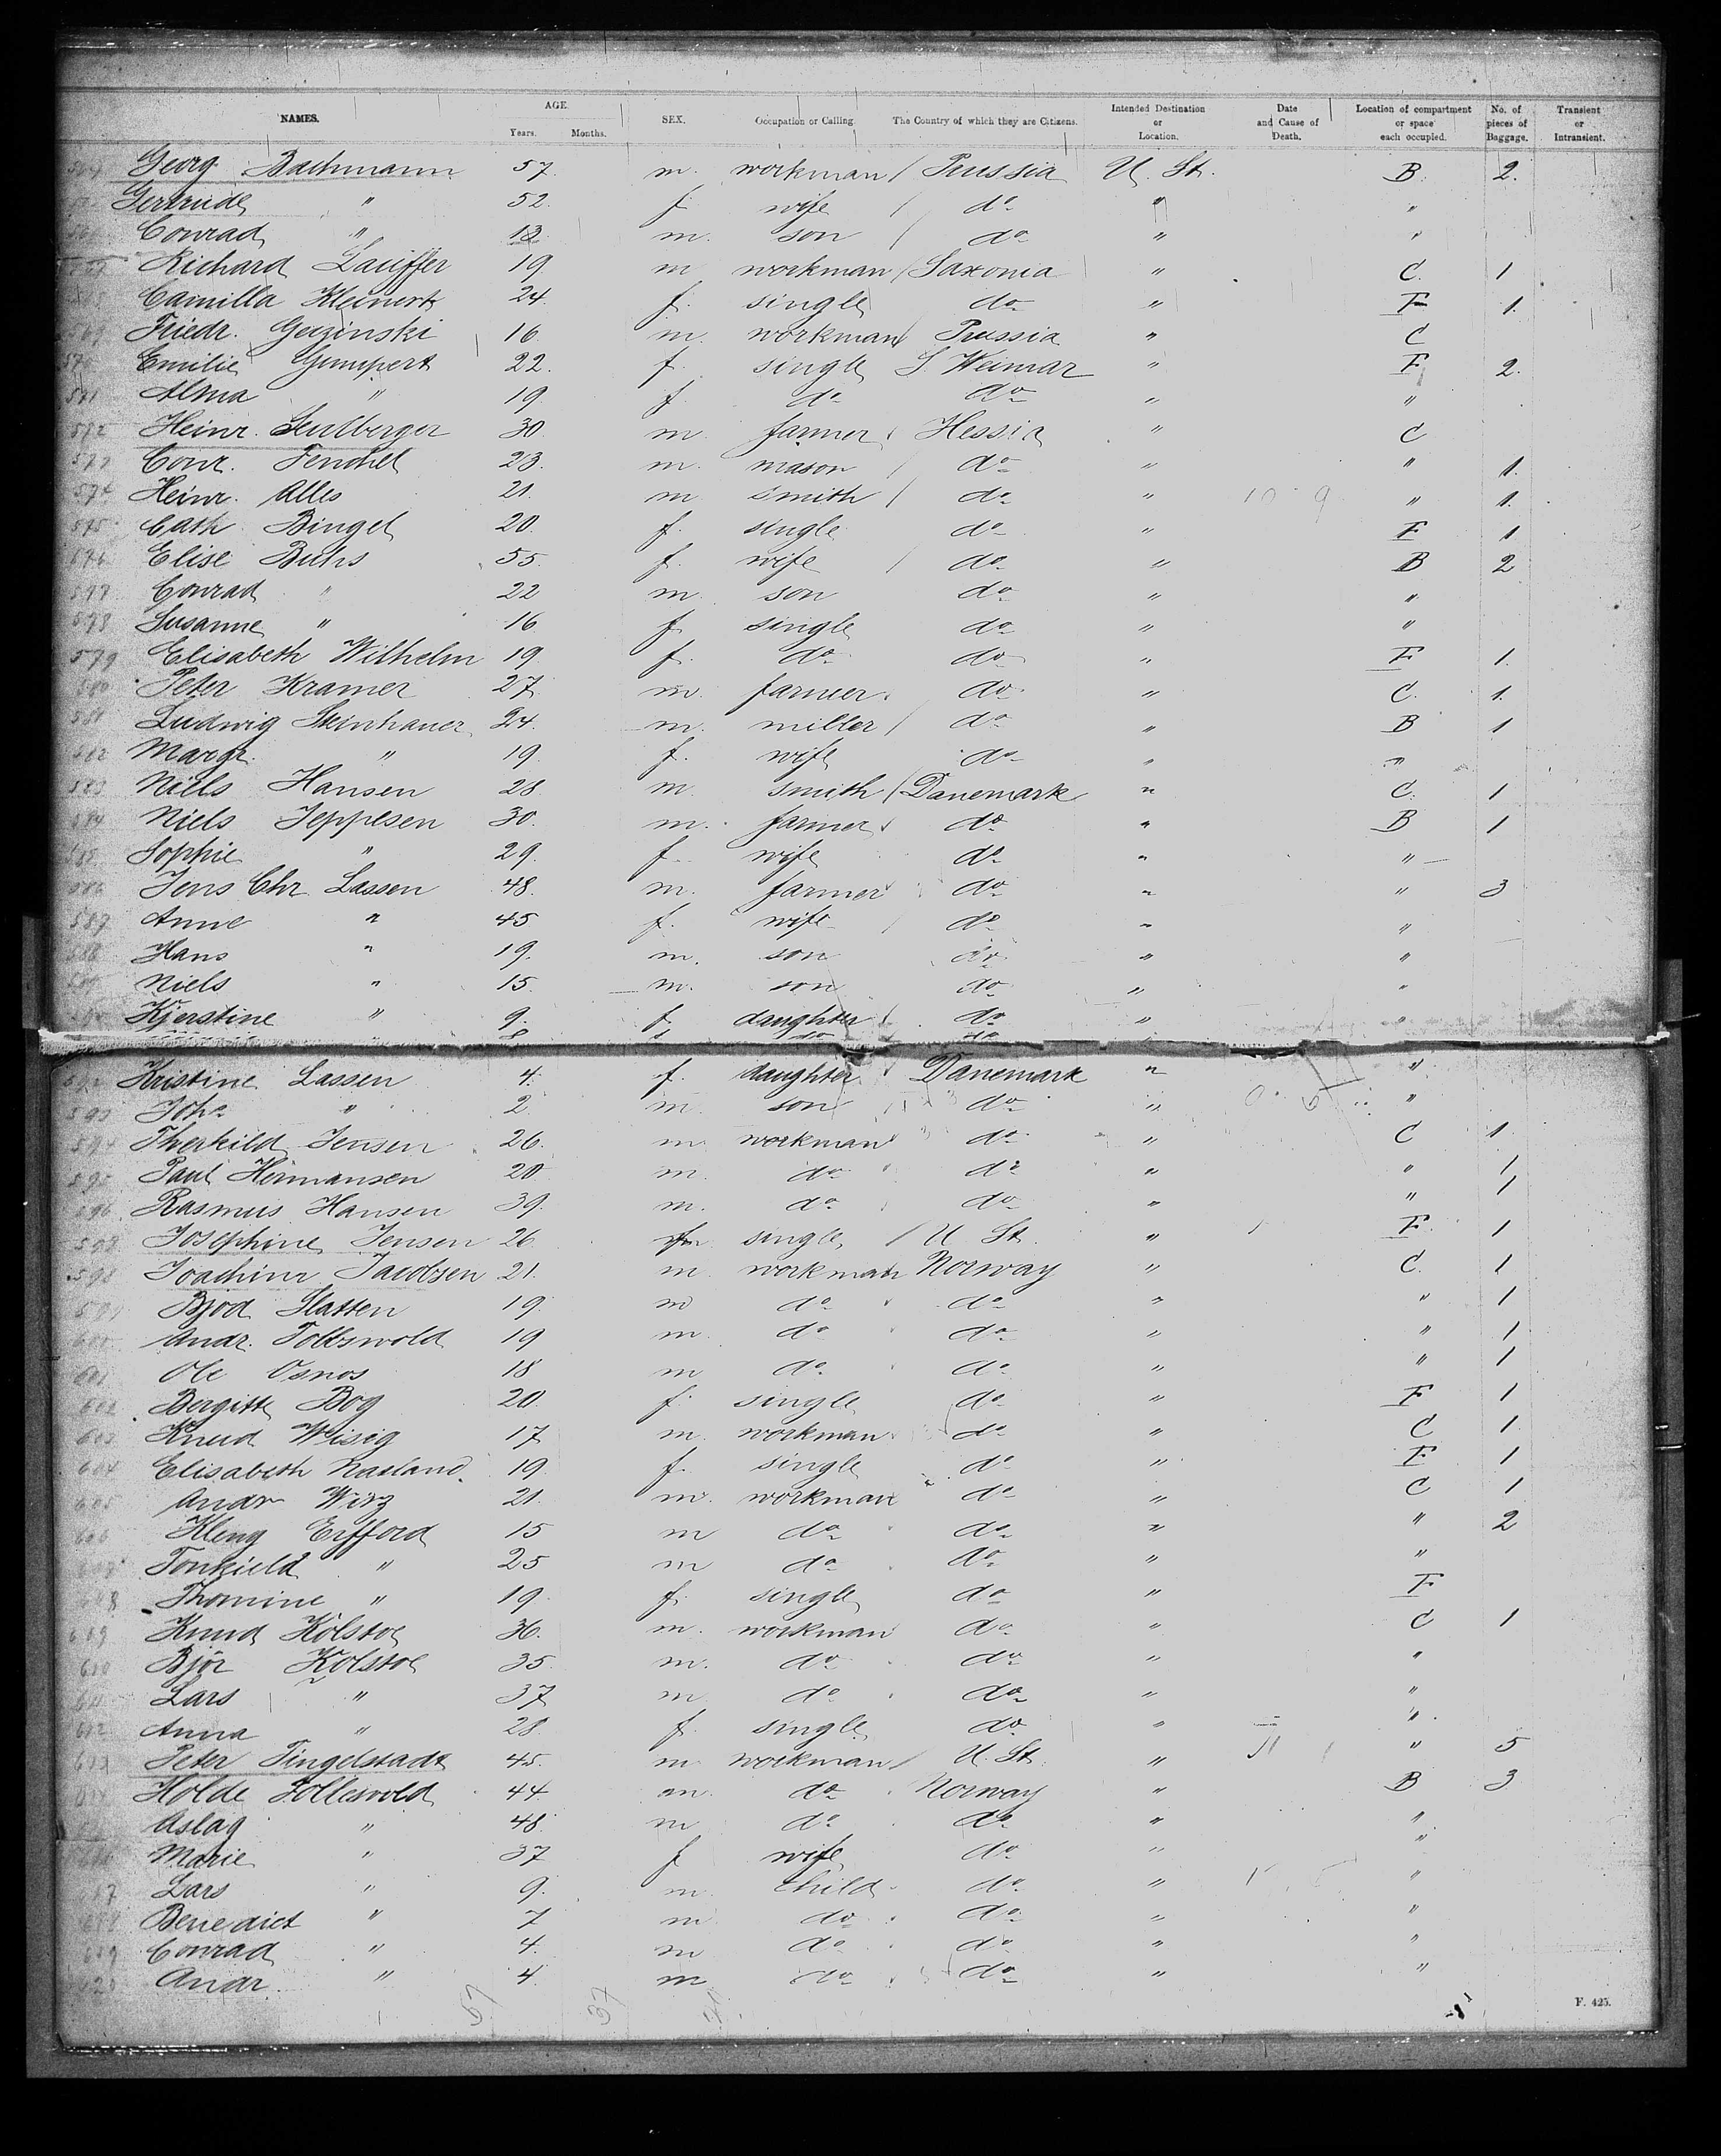 NAMES. AGE. Years. Months. SEX. Occupation or Calling. The Country of which they are Citizens. Intended Destination or Location. Date and Cause of Death. Location of compartment or space each occupied. No. of pieces of Baggage. Transient or Intransient.
Georg Bachmann 57 m. workman / Prussia U. St. B 2.
Gertrude " 52. f. wife / do " "
Conrad " 13 m. son / do " "
Richard Lauffer 19 m workman / Saxonia " C. 1
Camilla Kleinert 24. f. single do " F 1.
569 Friedr. 16 m. workman / Prussia " C
570 Emilie Gumpert 22. f. single S. Weimar " F 2.
571 Alma " 19 f. do do " "
572 Heinr. 30. m. farmer Hessia " C
573 Conr. Fenchel 23. m. mason / do " " 1.
574 Heinr. Alles 21. m smith / do " " 1.
575 Cath. Bingel 20. f. single do " F 1
576 Elise 55. f. wife / do " B 2
577 Conrad " 22 m. son do " "
578 Susanne " 16 f. single do " "
579 Elisabeth Wilhelm 19 f. do do " F 1.
580 Peter Kramer 27. m. farmer do " C. 1.
581 Ludwig Steinhauer 24. m. miller / do " B 1
582 Margr. " 19. f. wife do " "
583 Niels Hansen 28 m. smith / Danemark " C. 1
584 Niels Jeppesen 30. m. farmer do " B 1
585 Sophie " 29. f. wife do " "
586 Jens Chr. Lassen 48. m. farmer do " " 3
587 Anne " 45 f. wife / do " "
588 Hans " 19. m. son do " "
589 Niels " 15. m. son do " "
Kjerstine " 9. f daughter do " "
592 Kristine Lassen 4. f. daughter Danemark " "
593 Joh. " 2. m. son do " "
594 Therkild Jensen 26. m. workman do " C 1.
595 Paul Hermansen 20 m. do do " " 1
596 Rasmus Hansen 39. m. do do " " 1
Josephine Jensen 26 f single / U St. " F. 1
598 Joachim Jacobsen 21. m. workman Norway " C. 1
599 Slatten 19. m do do " " 1
600 Andr. 19 m. do do " " 1
601 Ole Osnos 18 m do do " " 1
602 Bergitte Bog 20. f. single do " F 1
603 Knud Wisig 17 m. workman do " C 1.
604 Elisabeth 19. f. single do " F 1
605 Andr 21. m. workman do " C 1
606 Kleng Erfford 15 m do do " " 2
" 25 m do do " "
Thomine " 19. f. single do " F
609 Knud Kolstoe 36. m. workman do " C 1
610 Björ Kolstoe 35. m. do do " "
611 Lars " 37 m do do " "
612 Anna " 28. f. single do " "
613 Peter Tingelstadt 45. m workman / U. St. " " 5
Holde 44. m. do Norway " B 3
Aslag " 48. m do do " "
Marie " 37 f wife do " "
617 Lars " 9. m. child do " "
Benedict " 7 m do do " "
619 Conrad " 4. m do do " "
620 Andr. " 4. m do do " "
F. 425.